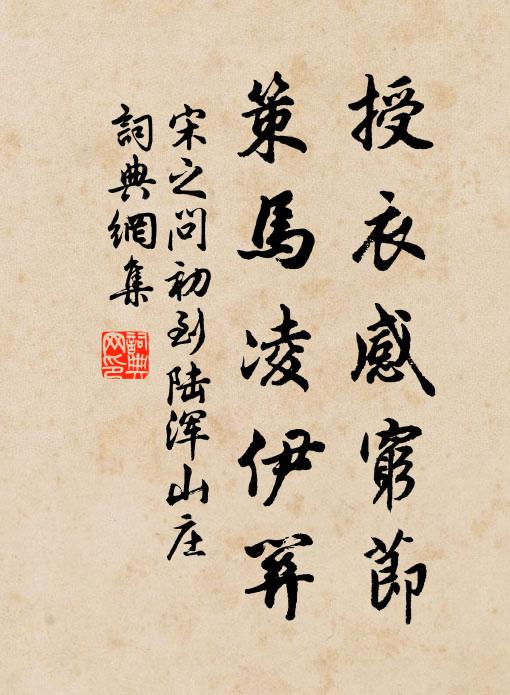 授衣感窮節
策馬凌伊関
宋之問初到陆浑山庄
詞典網集
詞典
网印